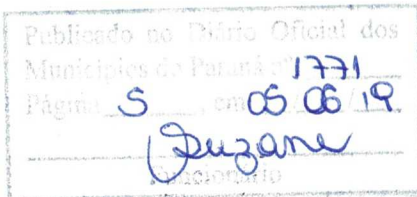 Publicado no Diário Oficial dos
Municípios do Paraná nº 1771
Página S, em 05/06/19
Suzane
Funcionário